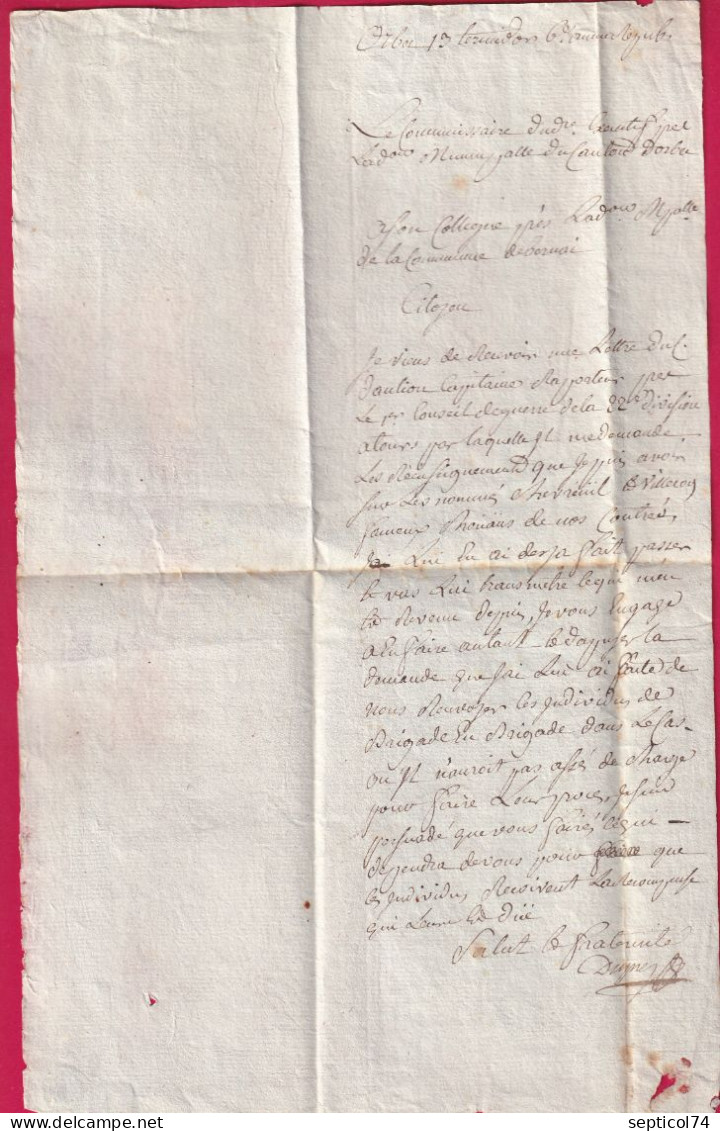 Orbec 13 termidor 6e année Repub
Le Commissaire du dre. Executif pres
Ladon Municipalle du Canton Dorbec
a Son Collegue près Ladon. Mpalle
de la Commune de
Citoyen
Je viens de Recevoir une Lettre du C.
Capitaine Raporteur pres
Le 1er Conseil de guerre de la 22e division
a tours par laquelle Il me demande
Les Renseignements que Je puis avoir
sur Les nommés Chevreuil &
fameux Chouans de nos Contrées,
Je Lui En ai deja fait passer
& vais Lui transmetre ce qui m'en
Est Revenu depuis, Je vous Engage
a En faire autant & d'appuyer la
demande que J'ai Lui ai faite de
nous Renvoyer ces Individus de
Brigade En Brigade dans Le Cas
ou Il n'auroit pas assés de charge
pour faire Leur procés, Je suis
persuadé que vous fairés ce qui
dependra de vous pour que
ces Individus Reçoivent La Recompense
qui Leur Est düe
Salut & fraternité
septicol74